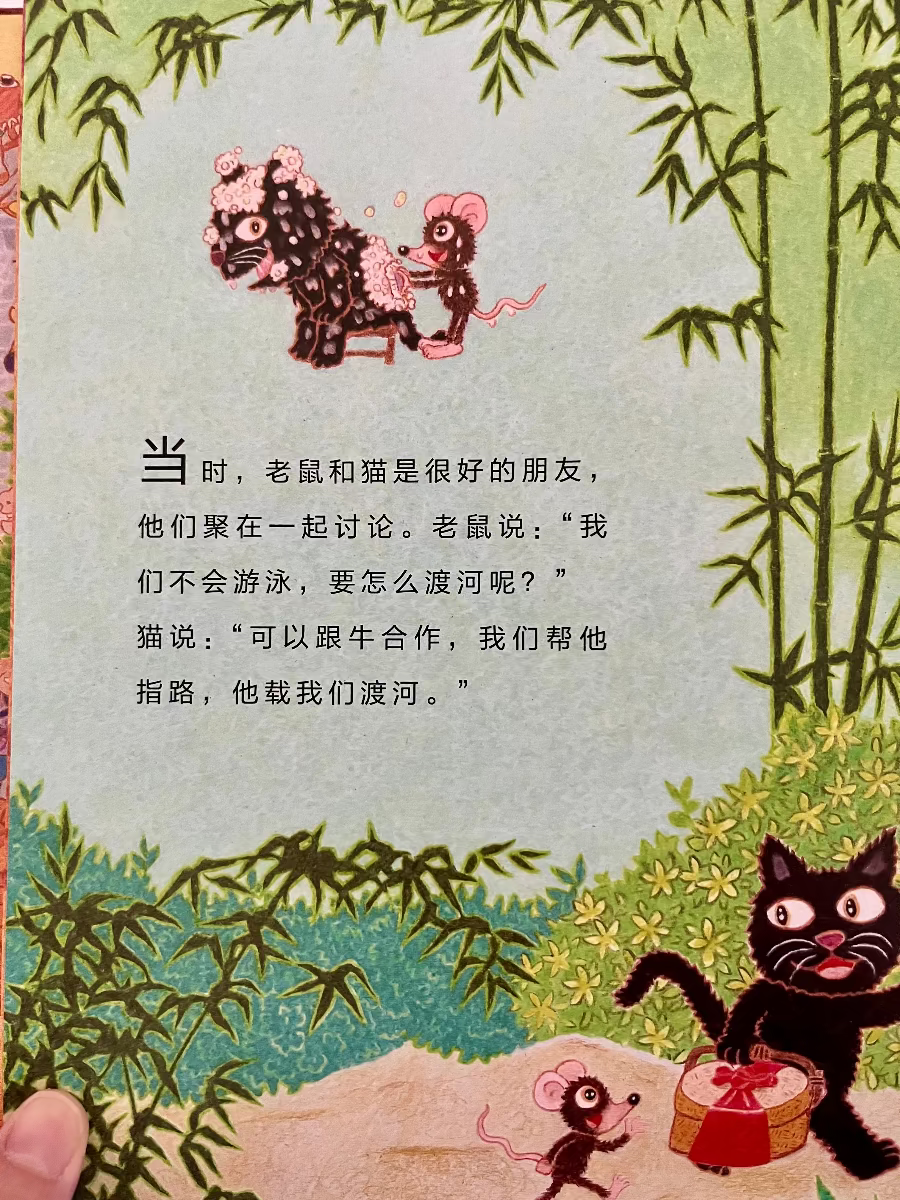 当时，老鼠和猫是很好的朋友，
他们聚在一起讨论。老鼠说：“我
们不会游泳，要怎么渡河呢？”
猫说：“可以跟牛合作，我们帮他
指路，他载我们渡河。”